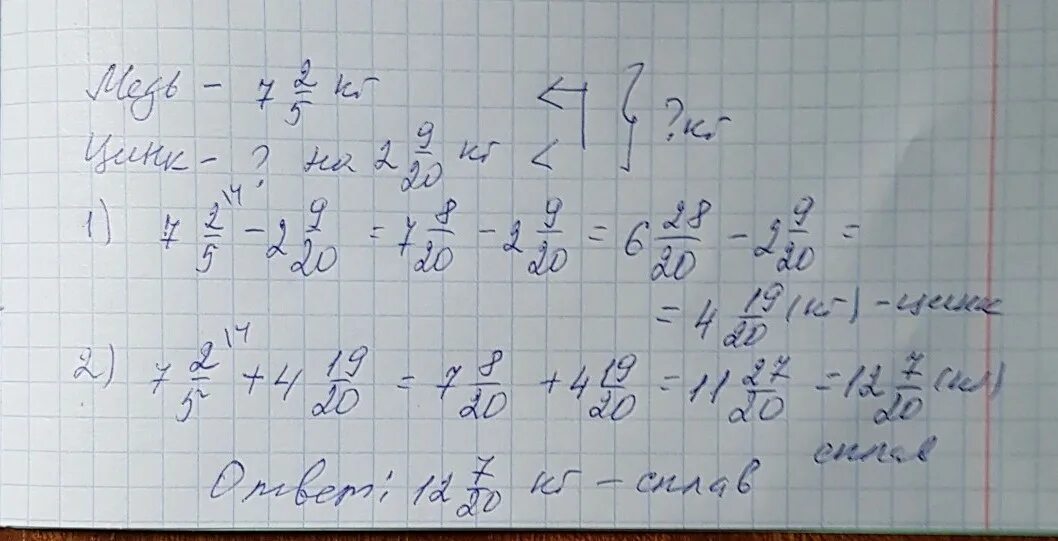 Медь – 7 2/5 кг < } ? кг
Цинк – ? на 2 9/20 кг <
1) 7 2/5 \4 – 2 9/20 = 7 8/20 – 2 9/20 = 6 28/20 – 2 9/20 =
= 4 19/20 (кг) – цинк
2) 7 2/5 \4 + 4 19/20 = 7 8/20 + 4 19/20 = 11 27/20 = 12 7/20 (кг)
сплав
Ответ: 12 7/20 кг – сплав